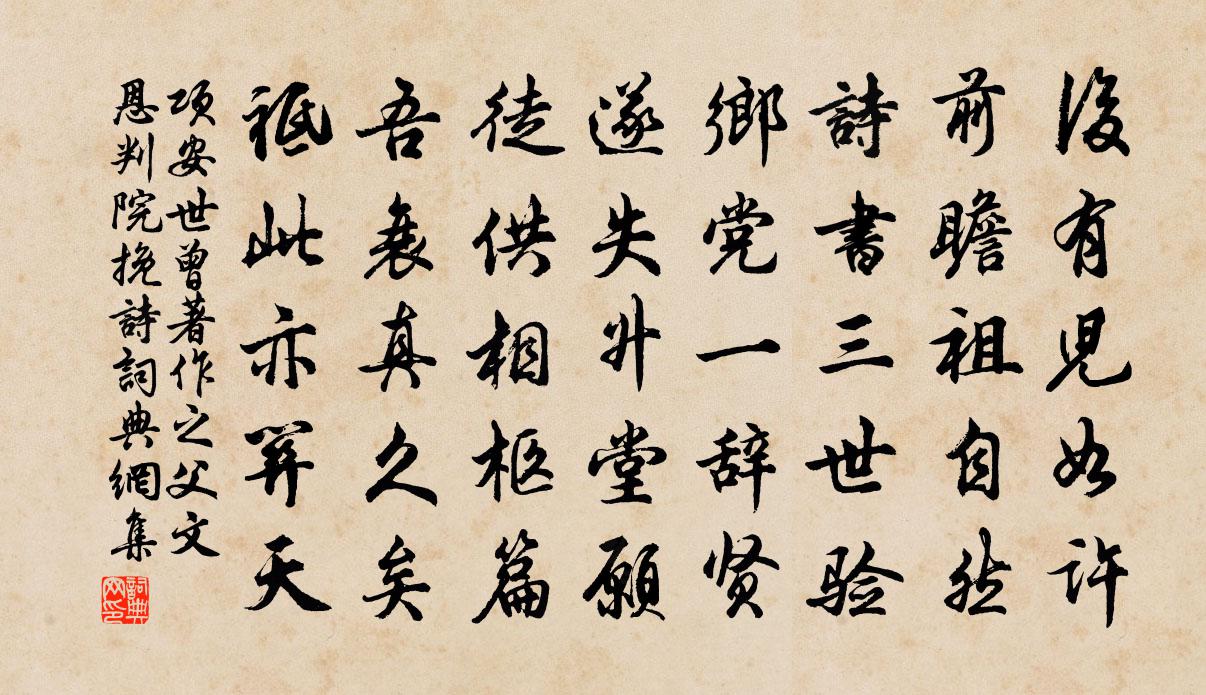 後有児如許
前瞻祖自然
詩書三世验
鄉党一辞贤
遂失升堂願
徒供相柩篇
吾衰真久矣
祗此亦関天
項安世曾著作之父文
恩判院挽詩詞典網集
詞典网印